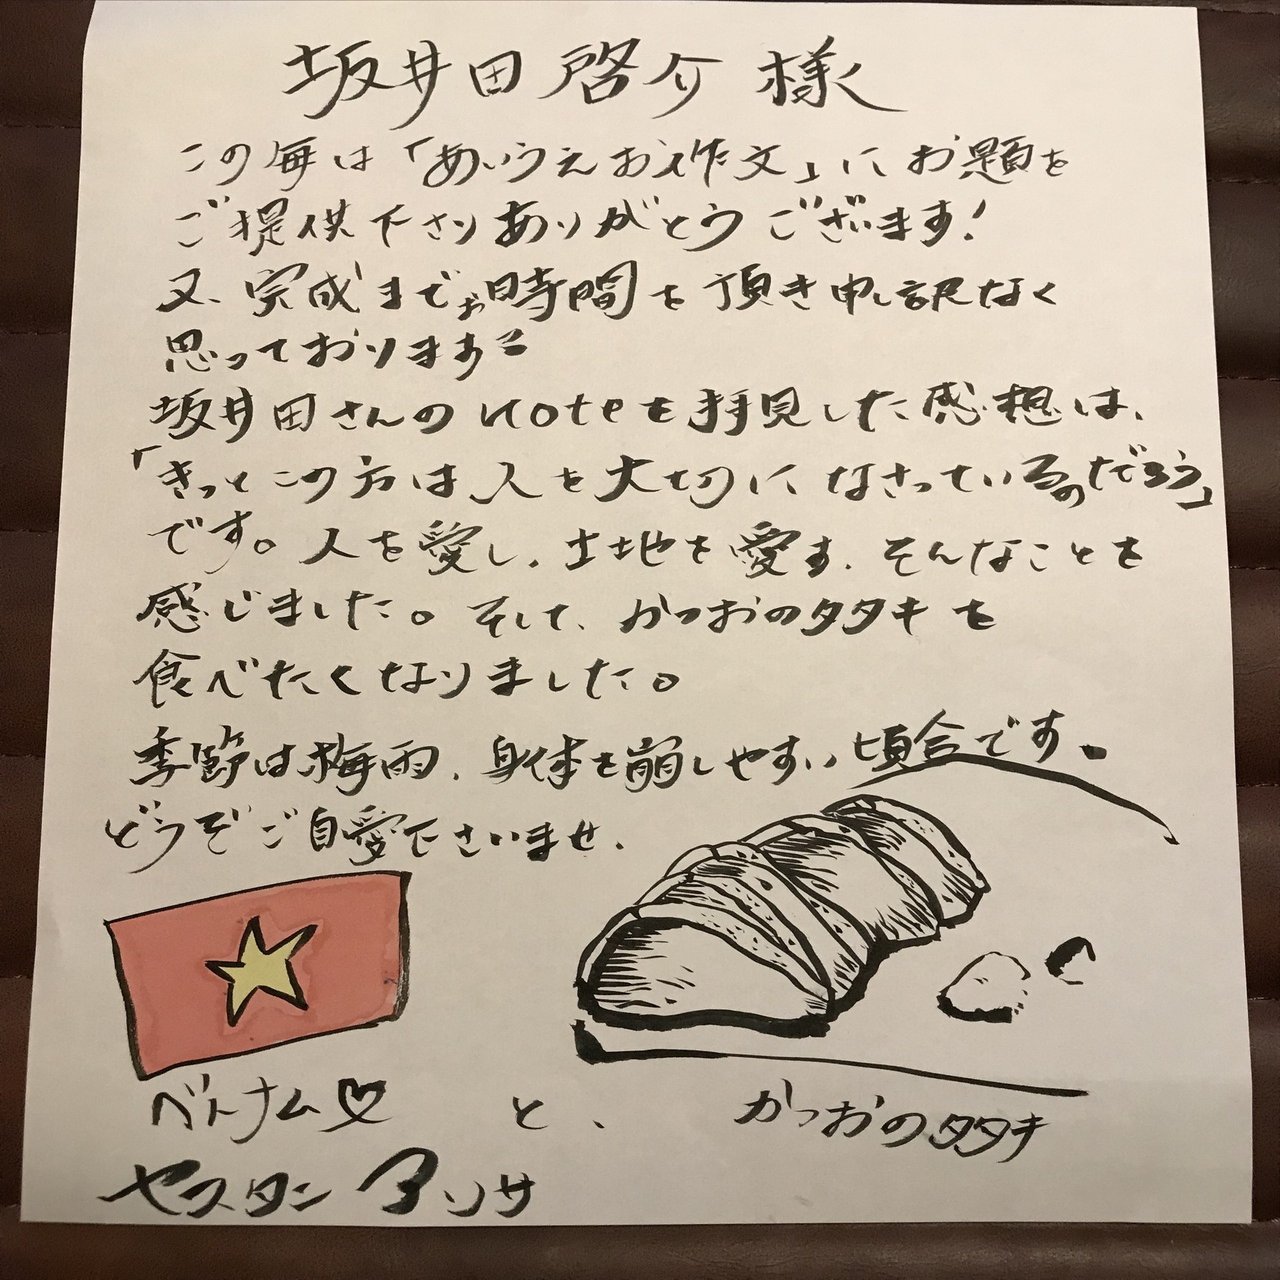 坂井田啓介様
この毎は「あいうえお作文」にお題を
ご提供下さりありがとうございます!
又、完成までお時間を頂き申し訳なく
思っております
坂井田さんのnoteを拝見した感想は、
「きっとこの方は人を大切になさっているのだろう」
です。人を愛し、土地を愛す、そんなことを
感じました。そして、かつおのタタキを
食べたくなりました。
季節は梅雨、身体を崩しやすい頃合です。
どうぞご自愛下さいませ、
ベトナム♡ と、 かつおのタタキ
セスタン アリサ